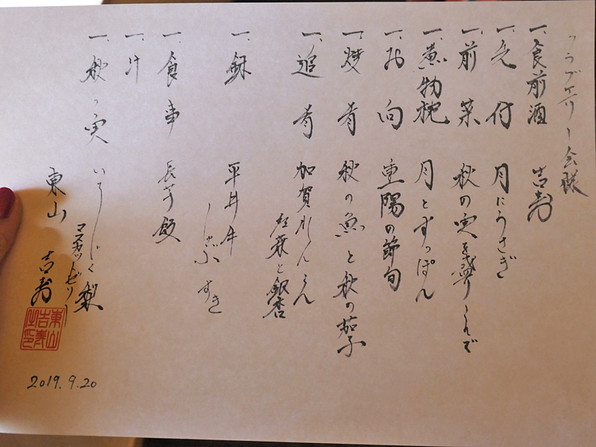 ラブリー会様
一、食前酒 吉寿
一、先付 月にうさぎ
一、前菜 秋の実を
一、煮物椀 月とすっぽん
一、お向 重陽の節句
一、焼肴 秋の魚と秋の茄子
一、追肴 加賀れんこん
銀杏
一、鍋 平井牛
しゃぶすき
一、食事
一、汁
一、秋の実 いちじく 梨
マスカットゼリー
東山 吉寿
2019.9.20